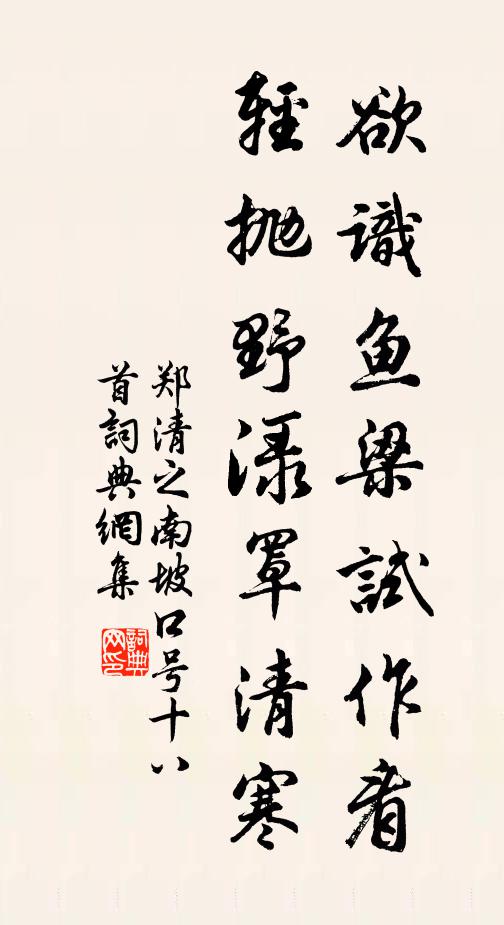 欲識鱼梁試作看
輕抛野渌罩清寒
郑清之南坡口号十八
首詞典網集
詞典网印